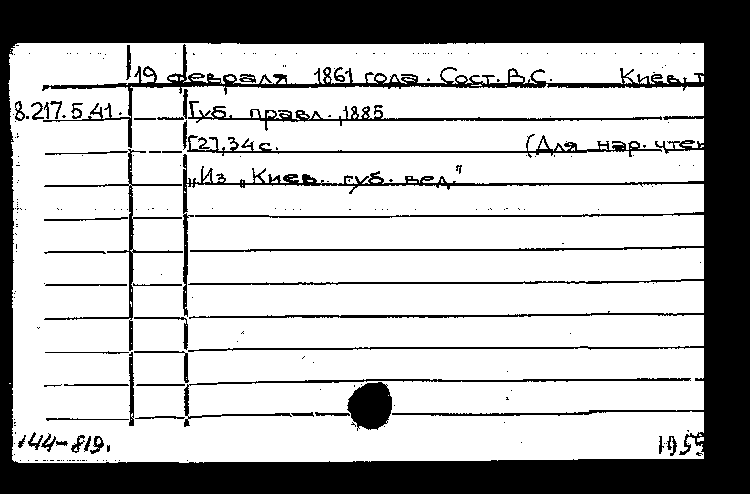 19 февраля 1861 года. Сост. В.С. Киев, т
8.217.5.41. Губ. правл., 1885
[2], 34 с. (Для нар. чтен
„Из „Киев. губ. вед."
144-819. 1955